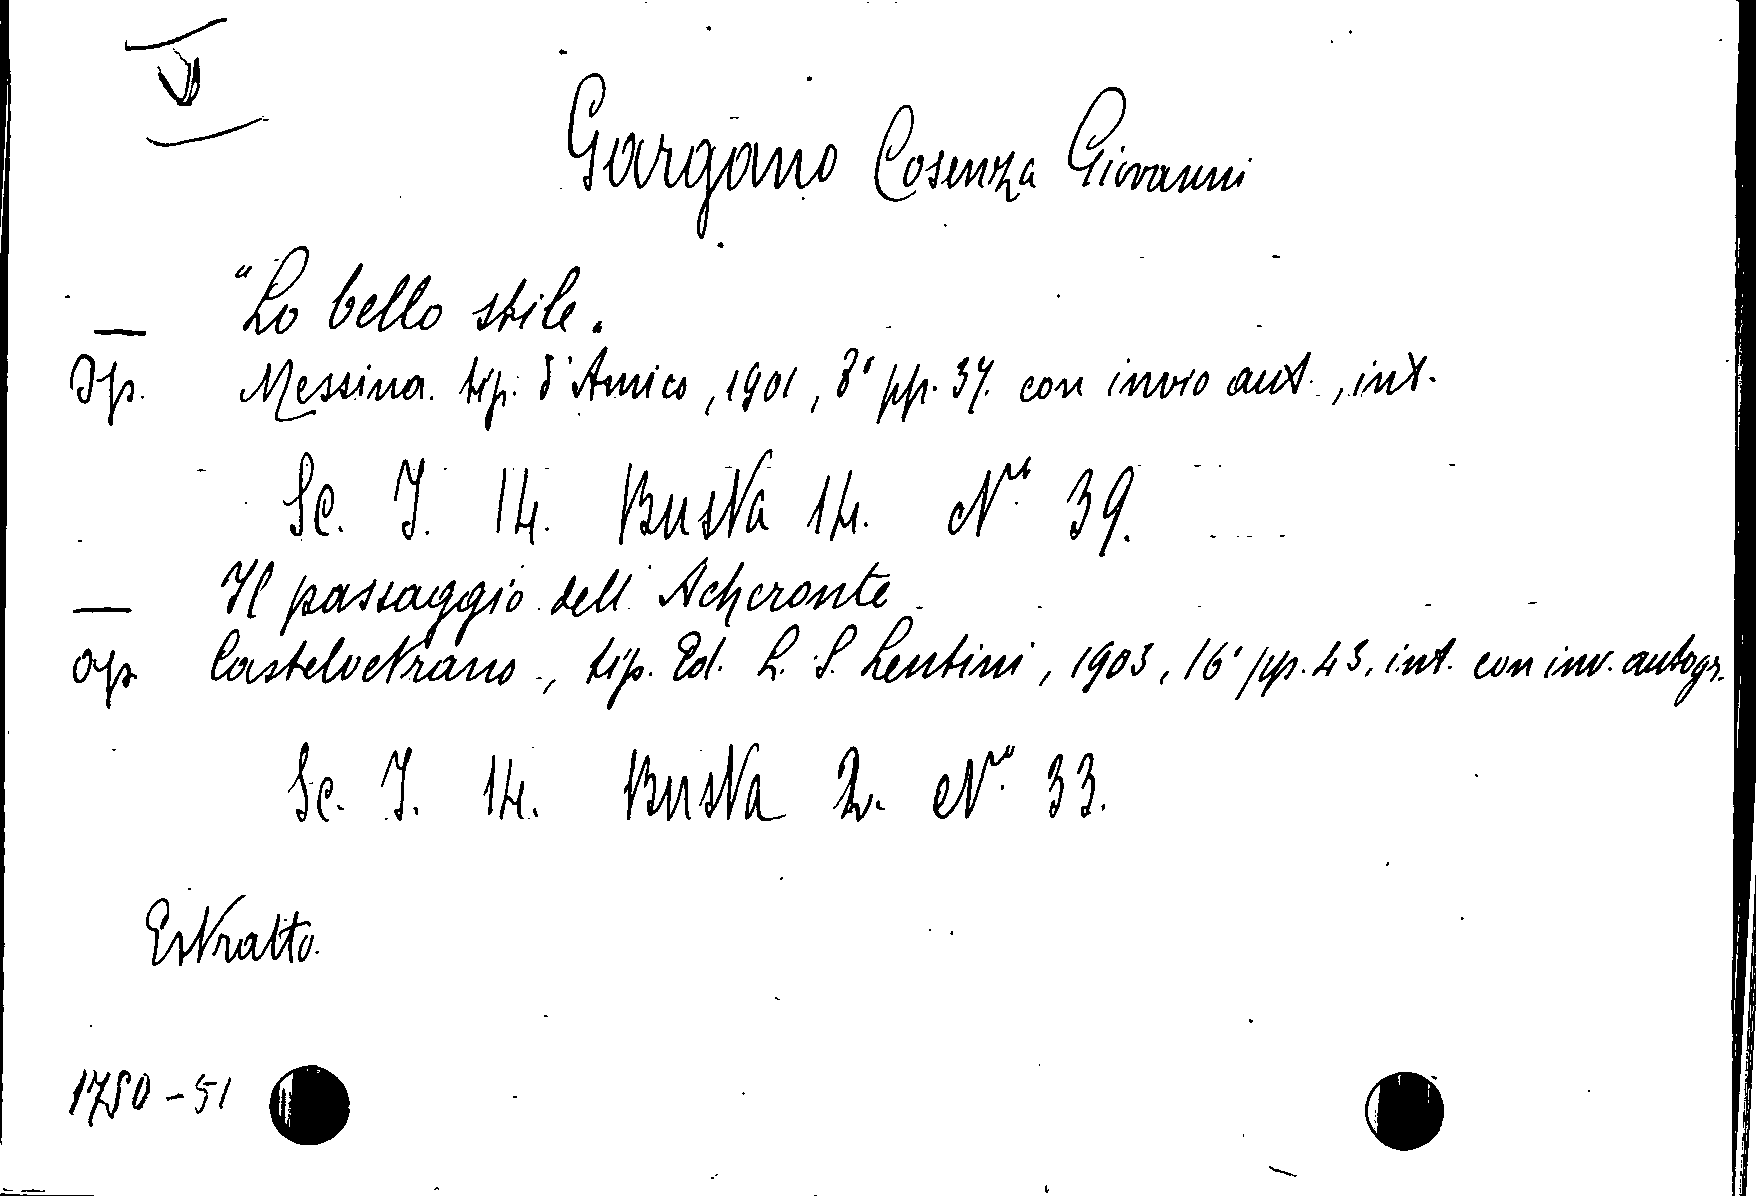 V
Gargano Cosenza Giovanni
— "Lo bello stile.
Op. Messina. tip. d'Amico, 1901, 8° pp. 37. con invio aut., int.
Sc. I. 14. Busta 14. N° 39.
— Il passaggio dell'Acheronte
Op. Castelvetrano, tip. Ed. L. S. Lentini, 1903, 16° pp. 43, int. con inv. autogr.
Sc. I. 14. Busta 2. N° 33.
Estratto.
1750-51